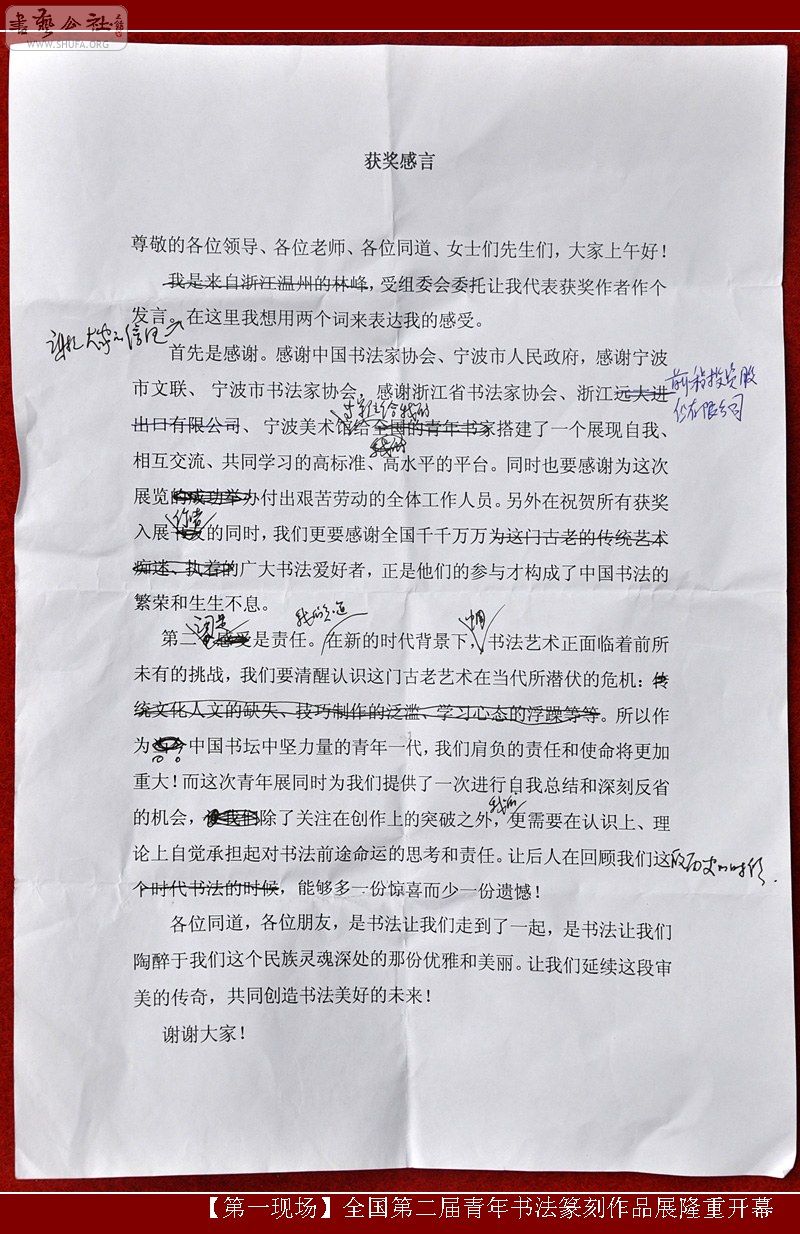 書藝公社
WWW.SHUFA.ORG
获奖感言
尊敬的各位领导、各位老师、各位同道、女士们先生们，大家上午好！
我是来自浙江温州的林峰，受组委会委托让我代表获奖作者作个
发言。在这里我想用两个词来表达我的感受。
谢谢大家的信任
首先是感谢。感谢中国书法家协会、宁波市人民政府，感谢宁波
市文联、宁波市书法家协会、感谢浙江省书法家协会、浙江远大进
前程投资股
份有限公司
出口有限公司、宁波美术馆给全国的青年书家搭建了一个展现自我、
我们
相互交流、共同学习的高标准、高水平的平台。同时也要感谢为这次
展览的成功举办付出艰苦劳动的全体工作人员。另外在祝贺所有获奖
作者
入展的同时，我们更要感谢全国千千万万为这门古老的传统艺术
痴迷、执着的广大书法爱好者，正是他们的参与才构成了中国书法的
繁荣和生生不息。
词是
我们知道
中国
第二感受是责任。在新的时代背景下，书法艺术正面临着前所
未有的挑战，我们要清醒认识这门古老艺术在当代所潜伏的危机：传
统文化人文的缺失、技巧制作的泛滥、学习心态的浮躁等等。所以作
为中国书坛中坚力量的青年一代，我们肩负的责任和使命将更加
重大！而这次青年展同时为我们提供了一次进行自我总结和深刻反省
我们
的机会，使我们除了关注在创作上的突破之外，更需要在认识上、理
论上自觉承担起对书法前途命运的思考和责任。让后人在回顾我们这
段历史的时候
个时代书法的时候，能够多一份惊喜而少一份遗憾！
各位同道，各位朋友，是书法让我们走到了一起，是书法让我们
陶醉于我们这个民族灵魂深处的那份优雅和美丽。让我们延续这段审
美的传奇，共同创造书法美好的未来！
谢谢大家！
【第一现场】全国第二届青年书法篆刻作品展隆重开幕